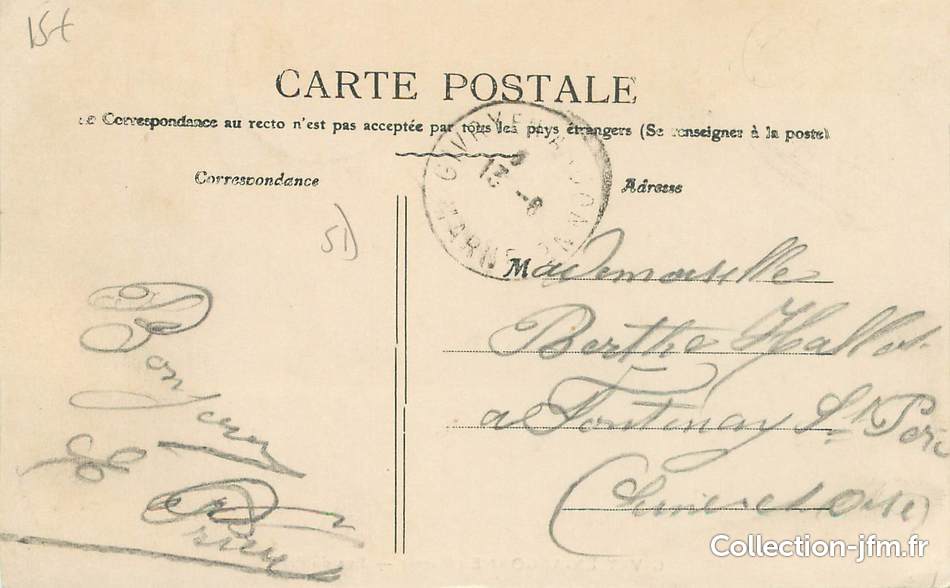 15€
CARTE POSTALE
La Correspondance au recto n'est pas acceptée par tous les pays étrangers (Se renseigner à la poste)
Correspondance
Adresse
MARNE
51
Mademoiselle
Berthe Hallot
a Fontenay St Père
(Seine et Oise)
Bonjour
de
Collection-jfm.fr